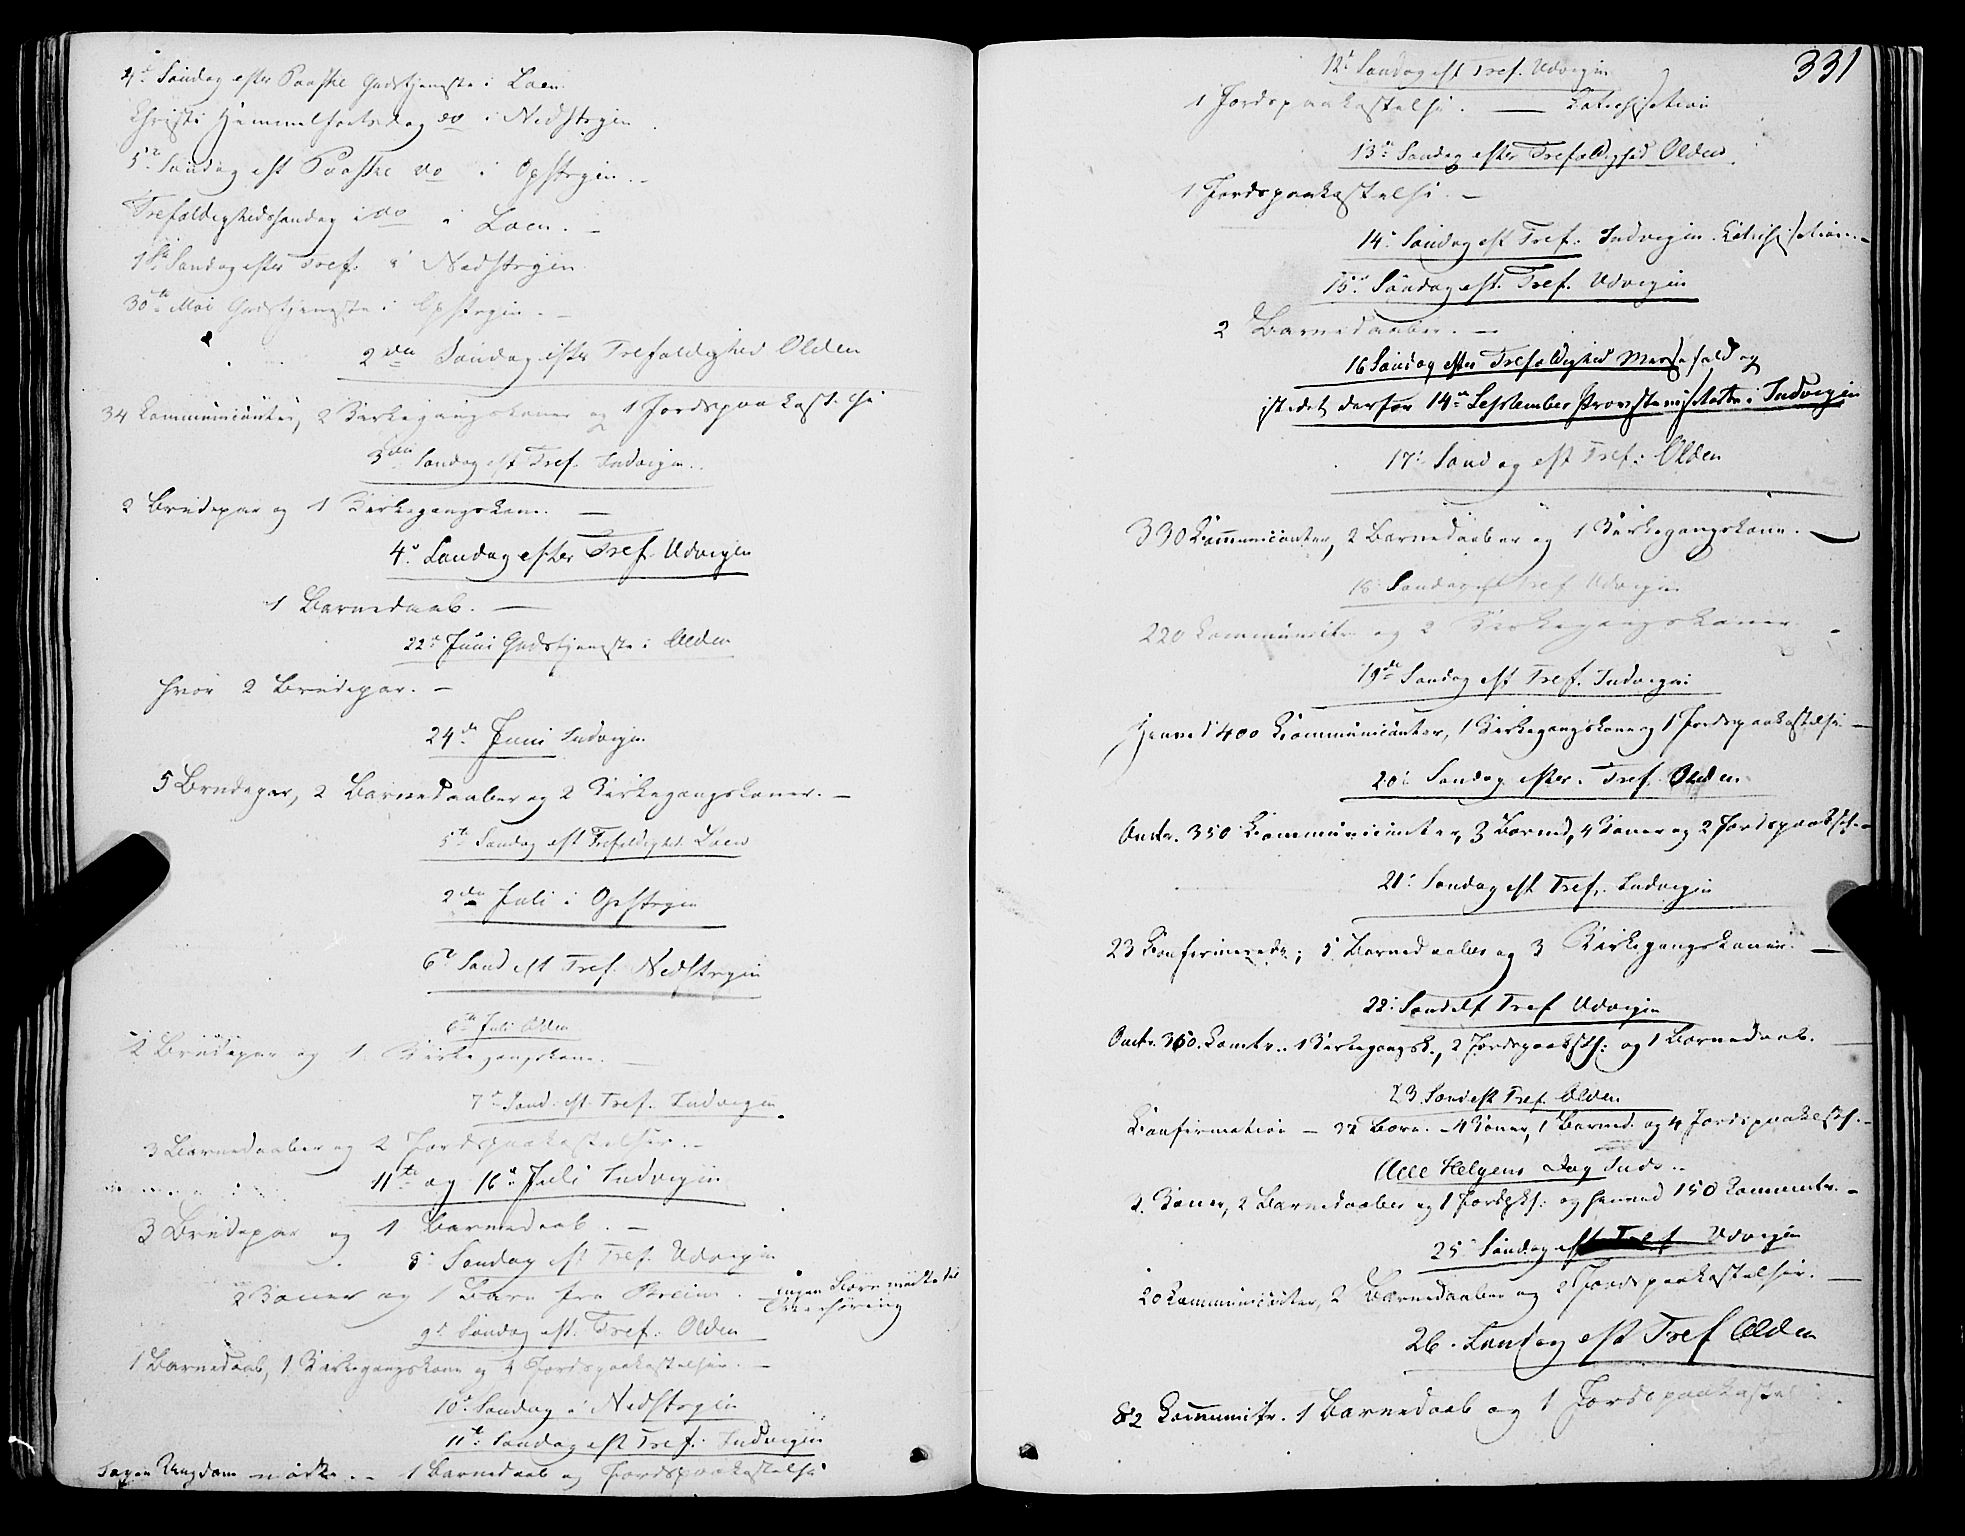 4de Søndag efter Paaske Gudstjeneste i Loen.
Christi Himmelfartsdag do i Nedstryen.
5te Søndag eft Paaske do i Opstryen. -
Trefoldighedssøndag i do i Loen. -
1ste Søndag efter Tref. i Nedstryen.
30te Mai Gudstjeneste i Opstryen. -
2den Søndag efter Trefoldighed Olden
34 Communicanter, 2 Kirkegangskoner og 1 Jordspaakastelse
3die Søndag eft Tref. Indvigen.
2 Brudepar og 1 Kirkegangskone. -
4de Søndag efter Tref. Udvigen
1 Barnedaab. -
22de Juni Gudstjeneste i Olden
hvor 2 Brudepar. -
24de Juni Indvigen
5 Brudepar, 2 Barnedaaber og 2 Kirkegangskoner. -
5te Søndag eft Trefoldighed Loen
2den Juli i Opstryen
6te Sønd eft Tref. Nedstryen
6te Juli Olden
2 Brudepar og 1 Kirkegangskone. -
7de Sønd. eft. Tref. Indvigen.
3 Barnedaaber og 2 Jordspaakastelser. -
11te og 16de Juli Indvigen
3 Brudepar og 1 Barnedaab. -
8de Søndag eft Tref. Udvigen
2 Koner og 1 Barn fra Breim. - ingen Børn mødte til
Overhøring
9de Søndag eft. Tref. Olden
1 Barnedaab, 1 Kirkegangskone og 4 Jordspaakastelser. -
10de Søndag i Nedstryen
11te Søndag eft Tref. Indvigen
Ingen Ungdom mødte. - 1 Barnedaab og Jordspaakastelse
331
12te Søndag eft Tref. Udvigen
1 Jordspaakastelse. - Catechisation
13de Søndag efter Trefoldighed Olden.
1 Jordspaakastelse. -
14de Søndag eft Tref. Indvigen. Catechisation. -
15de Søndag eft. Tref. Udvigen
2 Barnedaaber. -
16 Søndag efter Trefoldighed Messefald og
istedet derfor 14de September Provstevisitats i Indvigen
17de Søndag eft Tref: Olden
330 Communicanter, 2 Barnedaaber og 1 Kirkegangskone. -
18de Søndag eft Tref Udvigen
220 Communictr. og 2 Kirkegangskoner. -
19de Søndag eft Tref. Indvigen
Henved 400 Communicanter, 1 Kirkegangskone og 1 Jordspaakastelse -
20de Søndag efter Tref. Olden
Omtr. 350 Communicanter, 3 Barned, 4 Koner og 2 Jordspaakst. -
21de Søndag eft Tref. Indvigen
23 Confirmerede; 5 Barnedaaber og 3 Kirkegangskoner. -
22de Sønd eft Tref Udvigen
Omtr. 360. Comtr. 1 Kirkegangsk., 2 Jordspaakst: og 1 Barnedaab. -
23 Sønd eft Tref. Olden
Confirmation - 32 Børn. - 4 Koner, 1 Barned. og 4 Jordspaakast. -
Alle Helgens Dag Indv.
2 Koner, 2 Barnedaaber og 1 Jordpks: og henved 150 Communtr. -
25de Søndag eft Tref Udvigen
20 Communicanter, 2 Barnedaaber og 2 Jordspaakastelser. -
26. Søndag eft Tref Olden
82 Communictr. 1 Barnedaab og 1 Jordspaakastel